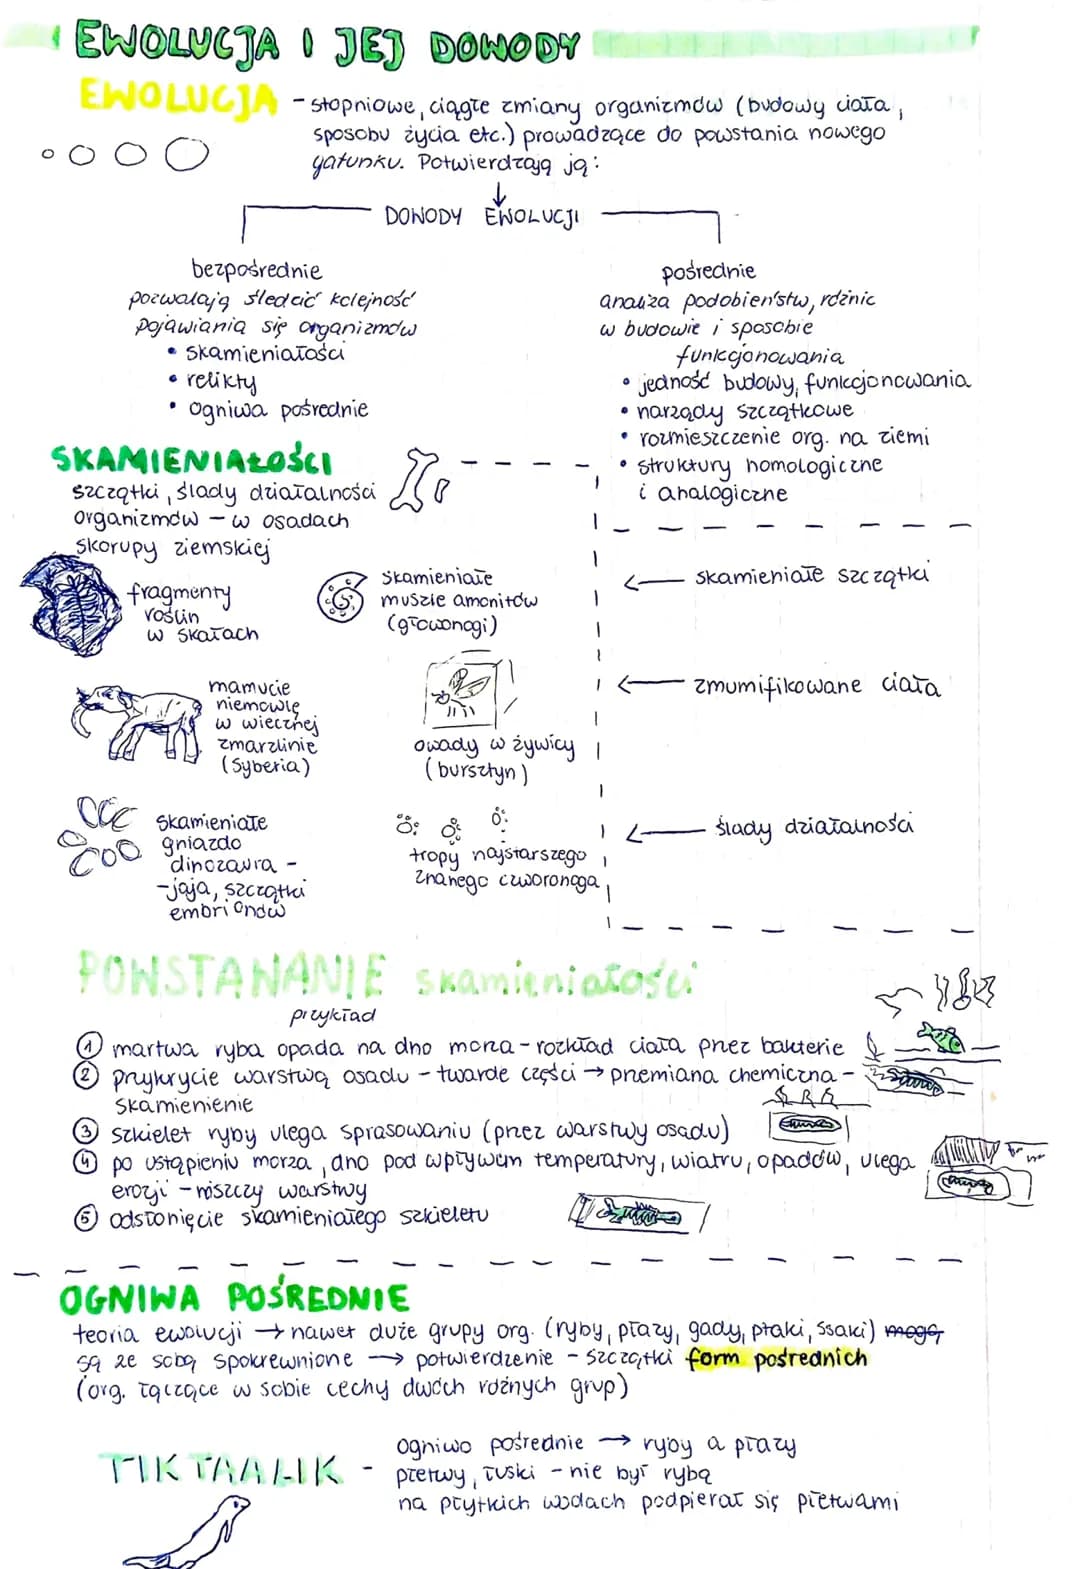 EWOLUCJA I JEJ DOWODY
EWOLUCJA - stopniowe, ciągłe zmiany organizmów (budowy ciała,
sposobu życia etc.) prowadzące do powstania nowego
gatunku. Potwierdzają ją:
↓
DOWODY EWOLUCJI
bezpośrednie
pozwalają śledzić kolejność
pojawiania się organizmów
• skamieniałości
• relikty
• ogniwa pośrednie
pośrednie
analiza podobieństw, różnic
w budowie i sposobie
funkcjonowania
• jedność budowy, funkcjonowania
• narządy szczątkowe
• rozmieszczenie org. na ziemi
• struktury homologiczne
i analogiczne
SKAMIENIAŁOŚCI
szczątki, ślady działalności
organizmów – w osadach
skorupy ziemskiej
fragmenty
roślin
w skałach
skamieniałe
muszle amonitów
(głowonogi)
← skamieniałe szczątki
mamucie
niemowlę
w wiecznej
zmarzlinie
(Syberia)
owady w żywicy
(bursztyn)
← zmumifikowane ciała
skamieniałe
gniazdo
dinozaura -
-jaja, szczątki
embrionów
tropy najstarszego
znanego czworonoga
← ślady działalności
POWSTANANIE skamieniałości
przykład
① martwa ryba opada na dno morza – rozkład ciała przez bakterie
② przykrycie warstwą osadu – twarde części → przemiana chemiczna –
skamienienie
③ szkielet ryby ulega sprasowaniu (przez warstwy osadu)
④ po ustąpieniu morza, dno pod wpływem temperatury, wiatru, opadów, ulega
erozji – niszczy warstwy
⑤ odsłonięcie skamieniałego szkieletu
OGNIWA POŚREDNIE
teoria ewolucji → nawet duże grupy org. (ryby, płazy, gady, ptaki, ssaki) mogą
są ze sobą spokrewnione → potwierdzenie – szczątki form pośrednich
(org. łączące w sobie cechy dwóch różnych grup)
TIKTAALIK -
ogniwo pośrednie → ryby a płazy
płetwy, łuski – nie był rybą
na płytkich wodach podpierał się płetwami